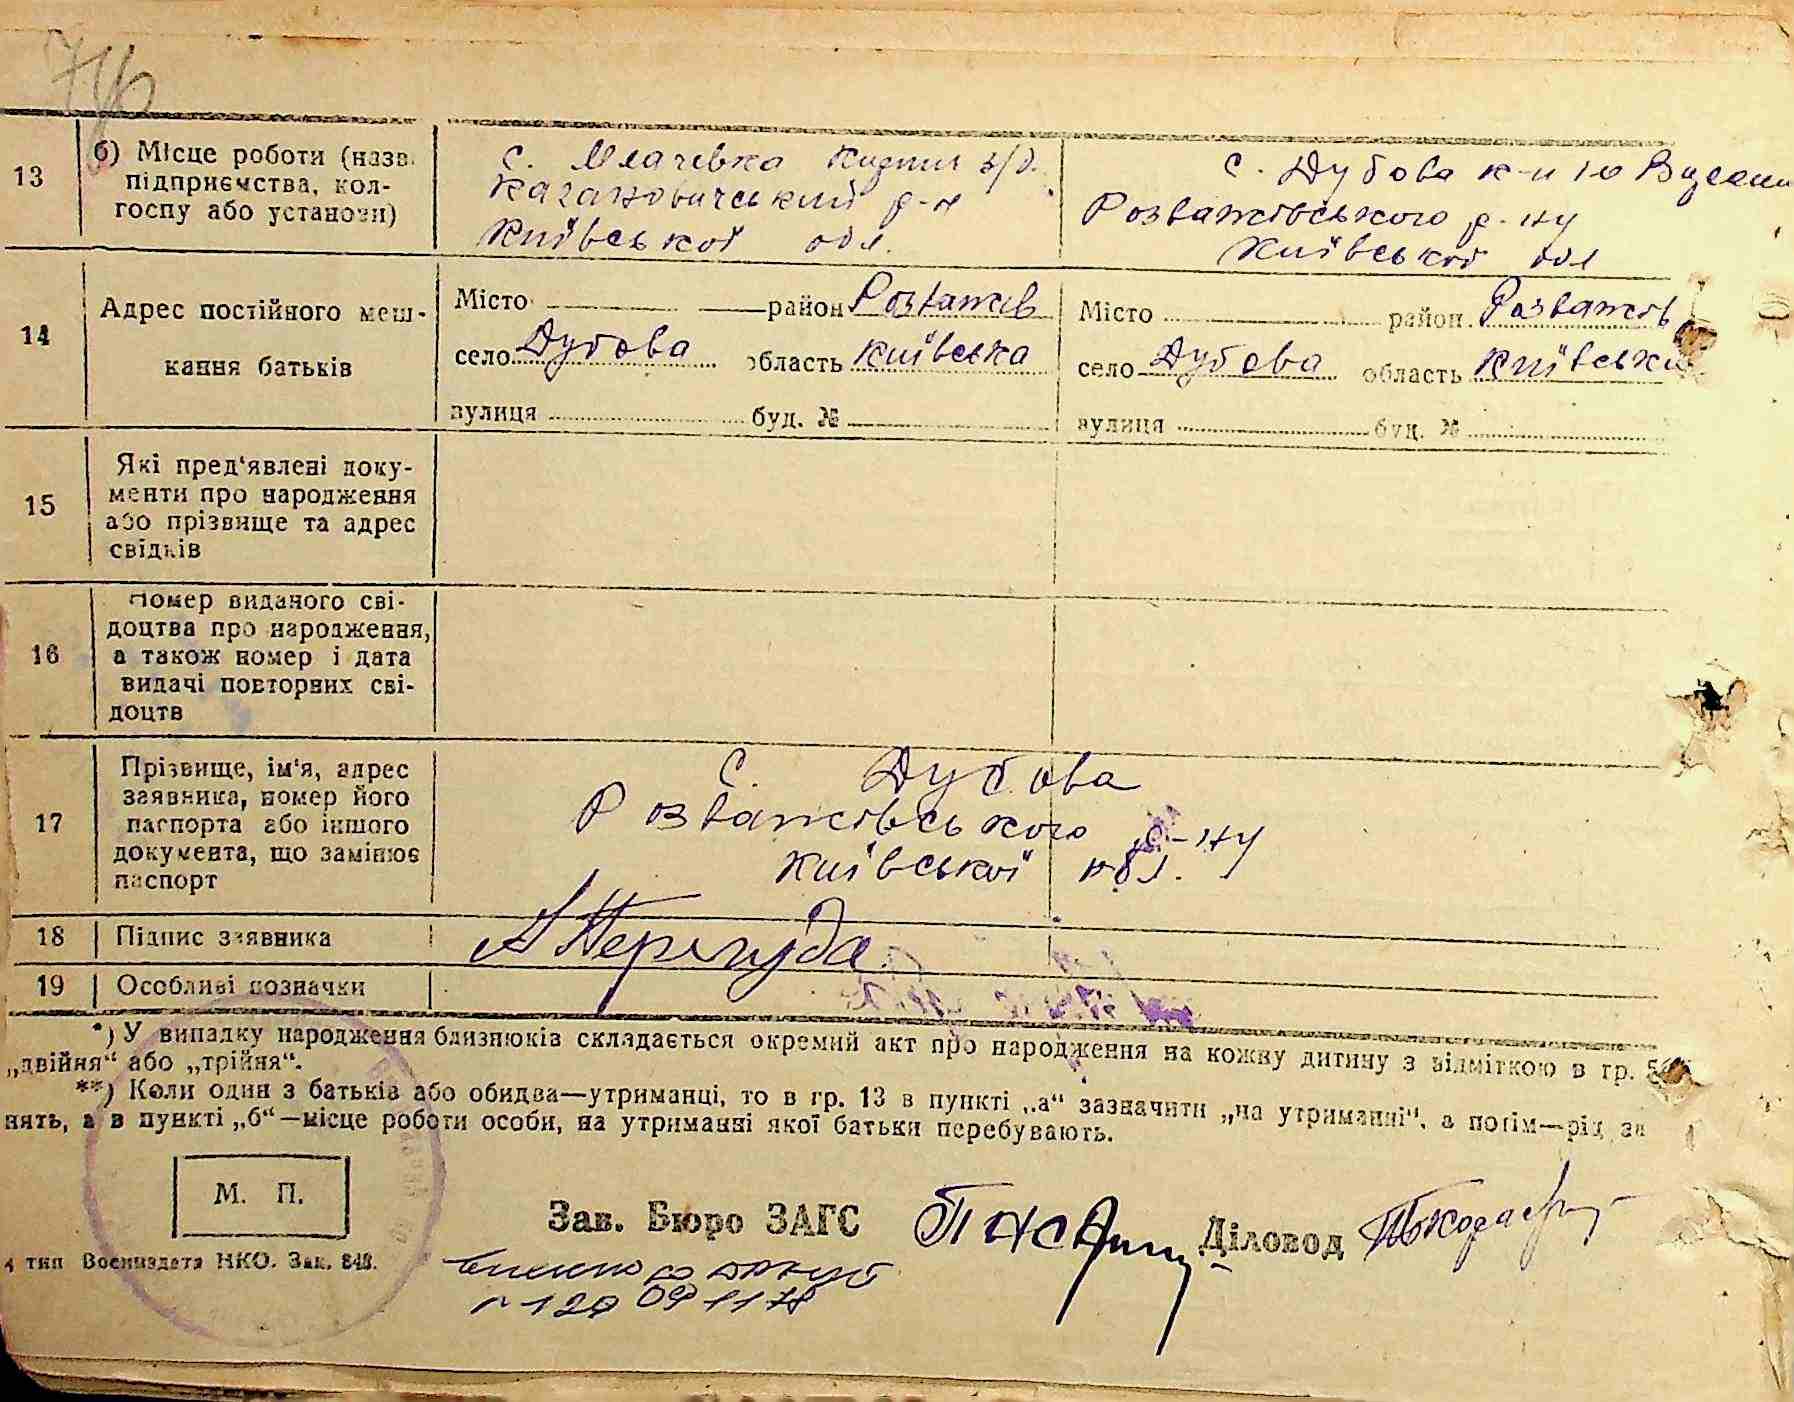 13
б) Місце роботи (назв.
підприємства, кол-
госпу або установи)
с. Млачевка
Кагановичський р-н
Київської обл.
с. Дубова к-п
Розважівського р-ну
Київської обл
14
Адрес постійного меш-
кання батьків
Місто район Розважів
село Дубова область Київська
вулиця буд. №
Місто район Розважів
село Дубова область Київська
вулиця буд. №
15
Які пред'явлені доку-
менти про народження
або прізвище та адрес
свідків
16
Номер виданого сві-
доцтва про народження,
а також номер і дата
видачі повторних сві-
доцтв
17
Прізвище, ім'я, адрес
заявника, номер його
паспорта або іншого
документа, що замінює
паспорт
с. Дубова
Розважівського р-ну
Київської обл.
18 Підпис заявника
А Перегуда
19 Особливі позначки
*) У випадку народження близнюків складається окремий акт про народження на кожну дитину з відміткою в гр. 5
„двійня“ або „трійня“.
**) Коли один з батьків або обидва—утриманці, то в гр. 13 в пункті „а“ зазначити „на утриманні“, а потім—рід за
нять, а в пункті „б“—місце роботи особи, на утриманні якої батьки перебувають.
М. П.
Зав. Бюро ЗАГС
Діловод
тип Воениздата НКО. Зак. 848.